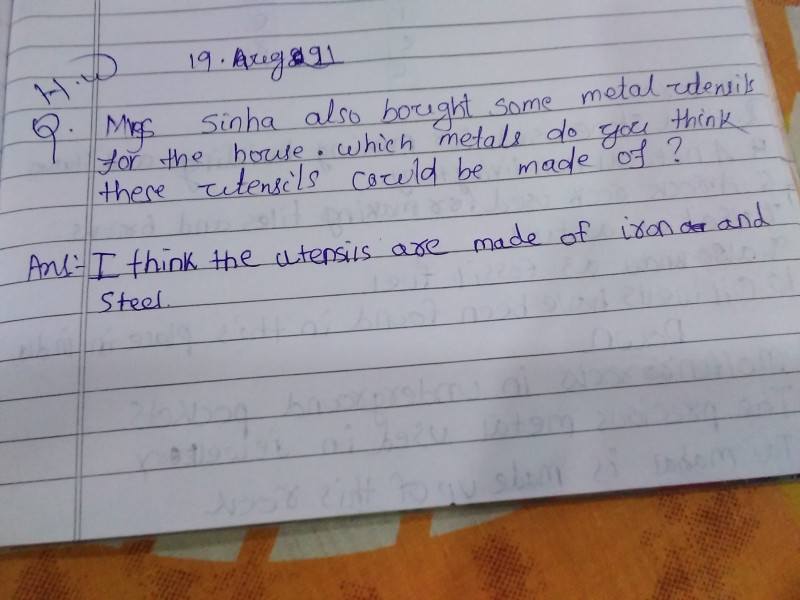 H.W
19. Aug 91
Q. Mrs Sinha also bought some metal utensils
for the house. which metals do you think
these utensils could be made of ?
Ans:- I think the utensils are made of iron and
Steel.